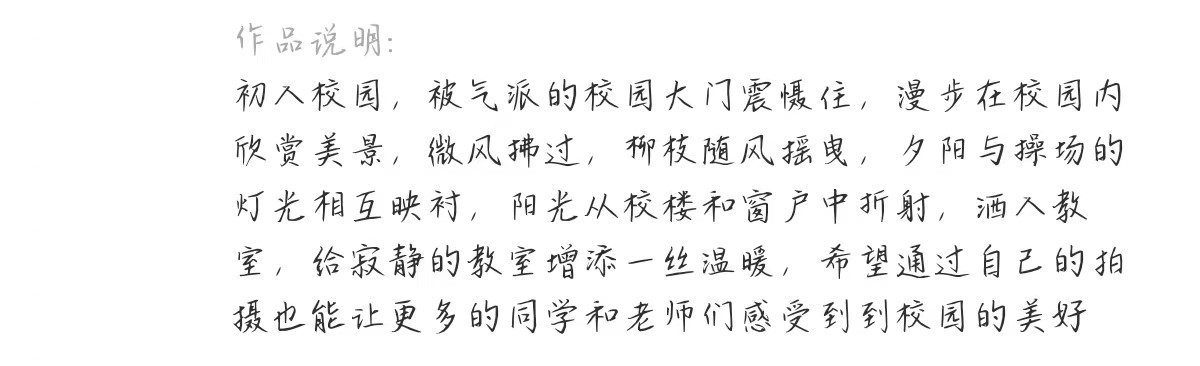 作品说明:
初入校园，被气派的校园大门震慑住，漫步在校园内
欣赏美景，微风拂过，柳枝随风摇曳，夕阳与操场的
灯光相互映衬，阳光从校楼和窗户中折射，洒入教
室，给寂静的教室增添一丝温暖，希望通过自己的拍
摄也能让更多的同学和老师们感受到到校园的美好